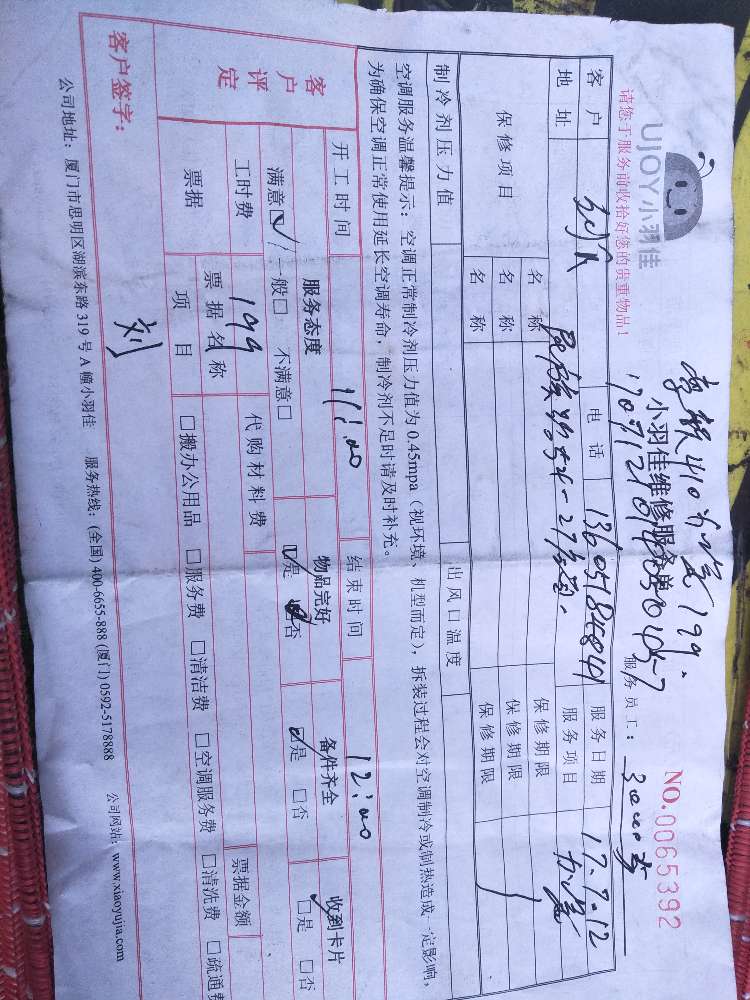 UJOY小羽佳
请您于服务前收拾好您的贵重物品!
小羽佳维修服务单
NO.0065392
服务员工:
客户
电话 13605184841
服务日期 17.7.12
地址
服务项目
保修项目
名称
保修期限
名称
保修期限
名称
保修期限
制冷剂压力值
出风口温度
空调服务温馨提示:空调正常制冷剂压力值为0.45mpa(视环境、机型而定),拆装过程会对空调制冷或制热造成一定影响,
为确保空调正常使用延长空调寿命,制冷剂不足时请及时补充。
开工时间 11:00
结束时间 12:00
客户评定
服务态度
物品完好
备件齐全
收到卡片
满意☑ 一般□ 不满意□
☑是 □否
☑是 □否
□是 □否
工时费 199
代购材料费
票据
票据名称
票据金额
项目
□搬办公用品 □服务费 □清洁费 □空调服务费 □清洗费 □疏通费
客户签字: 刘
公司地址:厦门市思明区湖滨东路319号A幢小羽佳 服务热线:(全国)400-6655-888 (厦门)0592-5178888 公司网站:www.xiaoyujia.com